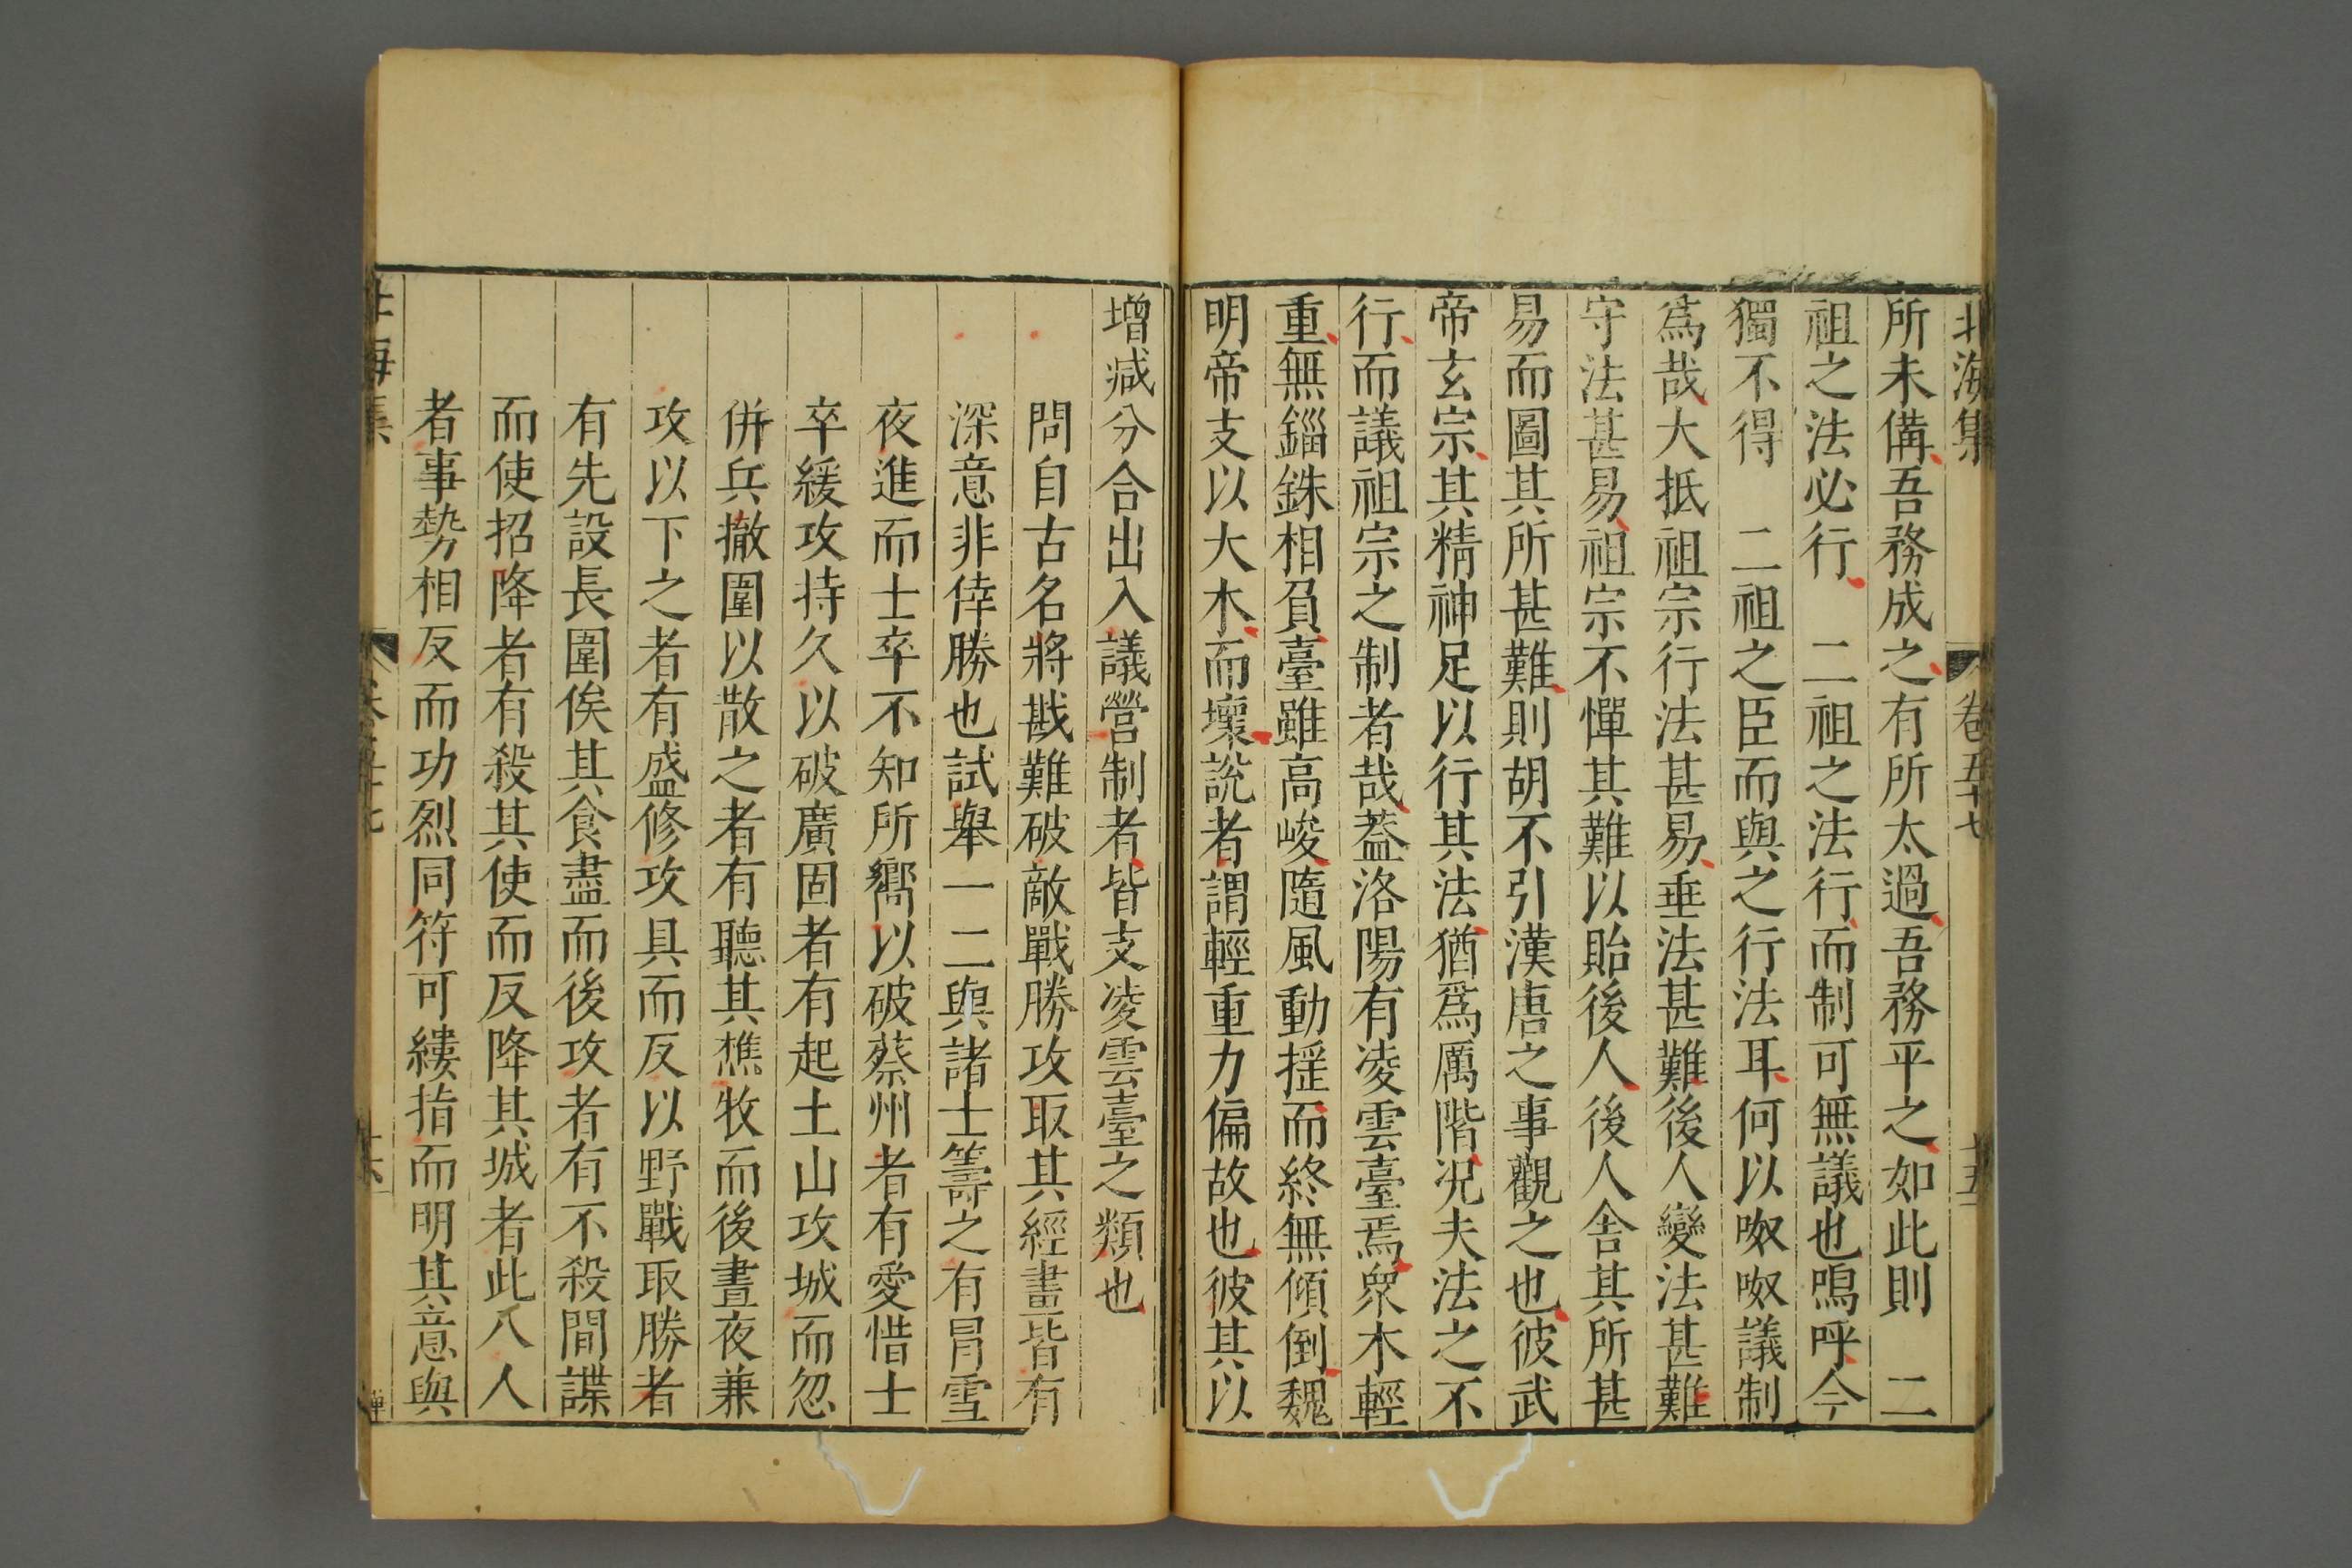 北海集 卷五十七 十五
所未備吾務成之有所太過吾務平之如此則 二
祖之法必行 二祖之法行而制可無議也嗚呼今
獨不得 二祖之臣而與之行法耳何以呶呶議制
爲哉大抵祖宗行法甚易垂法甚難後人變法甚難
守法甚易祖宗不憚其難以貽後人後人舍其所甚
易而圖其所甚難則胡不引漢唐之事觀之也彼武
帝玄宗其精神足以行其法猶爲厲階况夫法之不
行而議祖宗之制者哉葢洛陽有凌雲臺焉衆木輕
重無錙銖相負臺雖高峻隨風動揺而終無傾倒魏
明帝支以大木而壞說者謂輕重力偏故也彼其以
增减分合出入議營制者皆支凌雲臺之類也
問自古名將戡難破敵戰勝攻取其經畫皆有
深意非倖勝也試舉一二與諸士籌之有冐雪
夜進而士卒不知所嚮以破蔡州者有愛惜士
卒緩攻持久以破廣固者有起土山攻城而忽
併兵撤圍以散之者有聽其樵牧而後晝夜兼
攻以下之者有盛修攻具而反以野戰取勝者
有先設長圍俟其食盡而後攻者有不殺間諜
而使招降者有殺其使而反降其城者此八人
者事勢相反而功烈同符可縷指而明其意與
北海集 卷五十七 十六